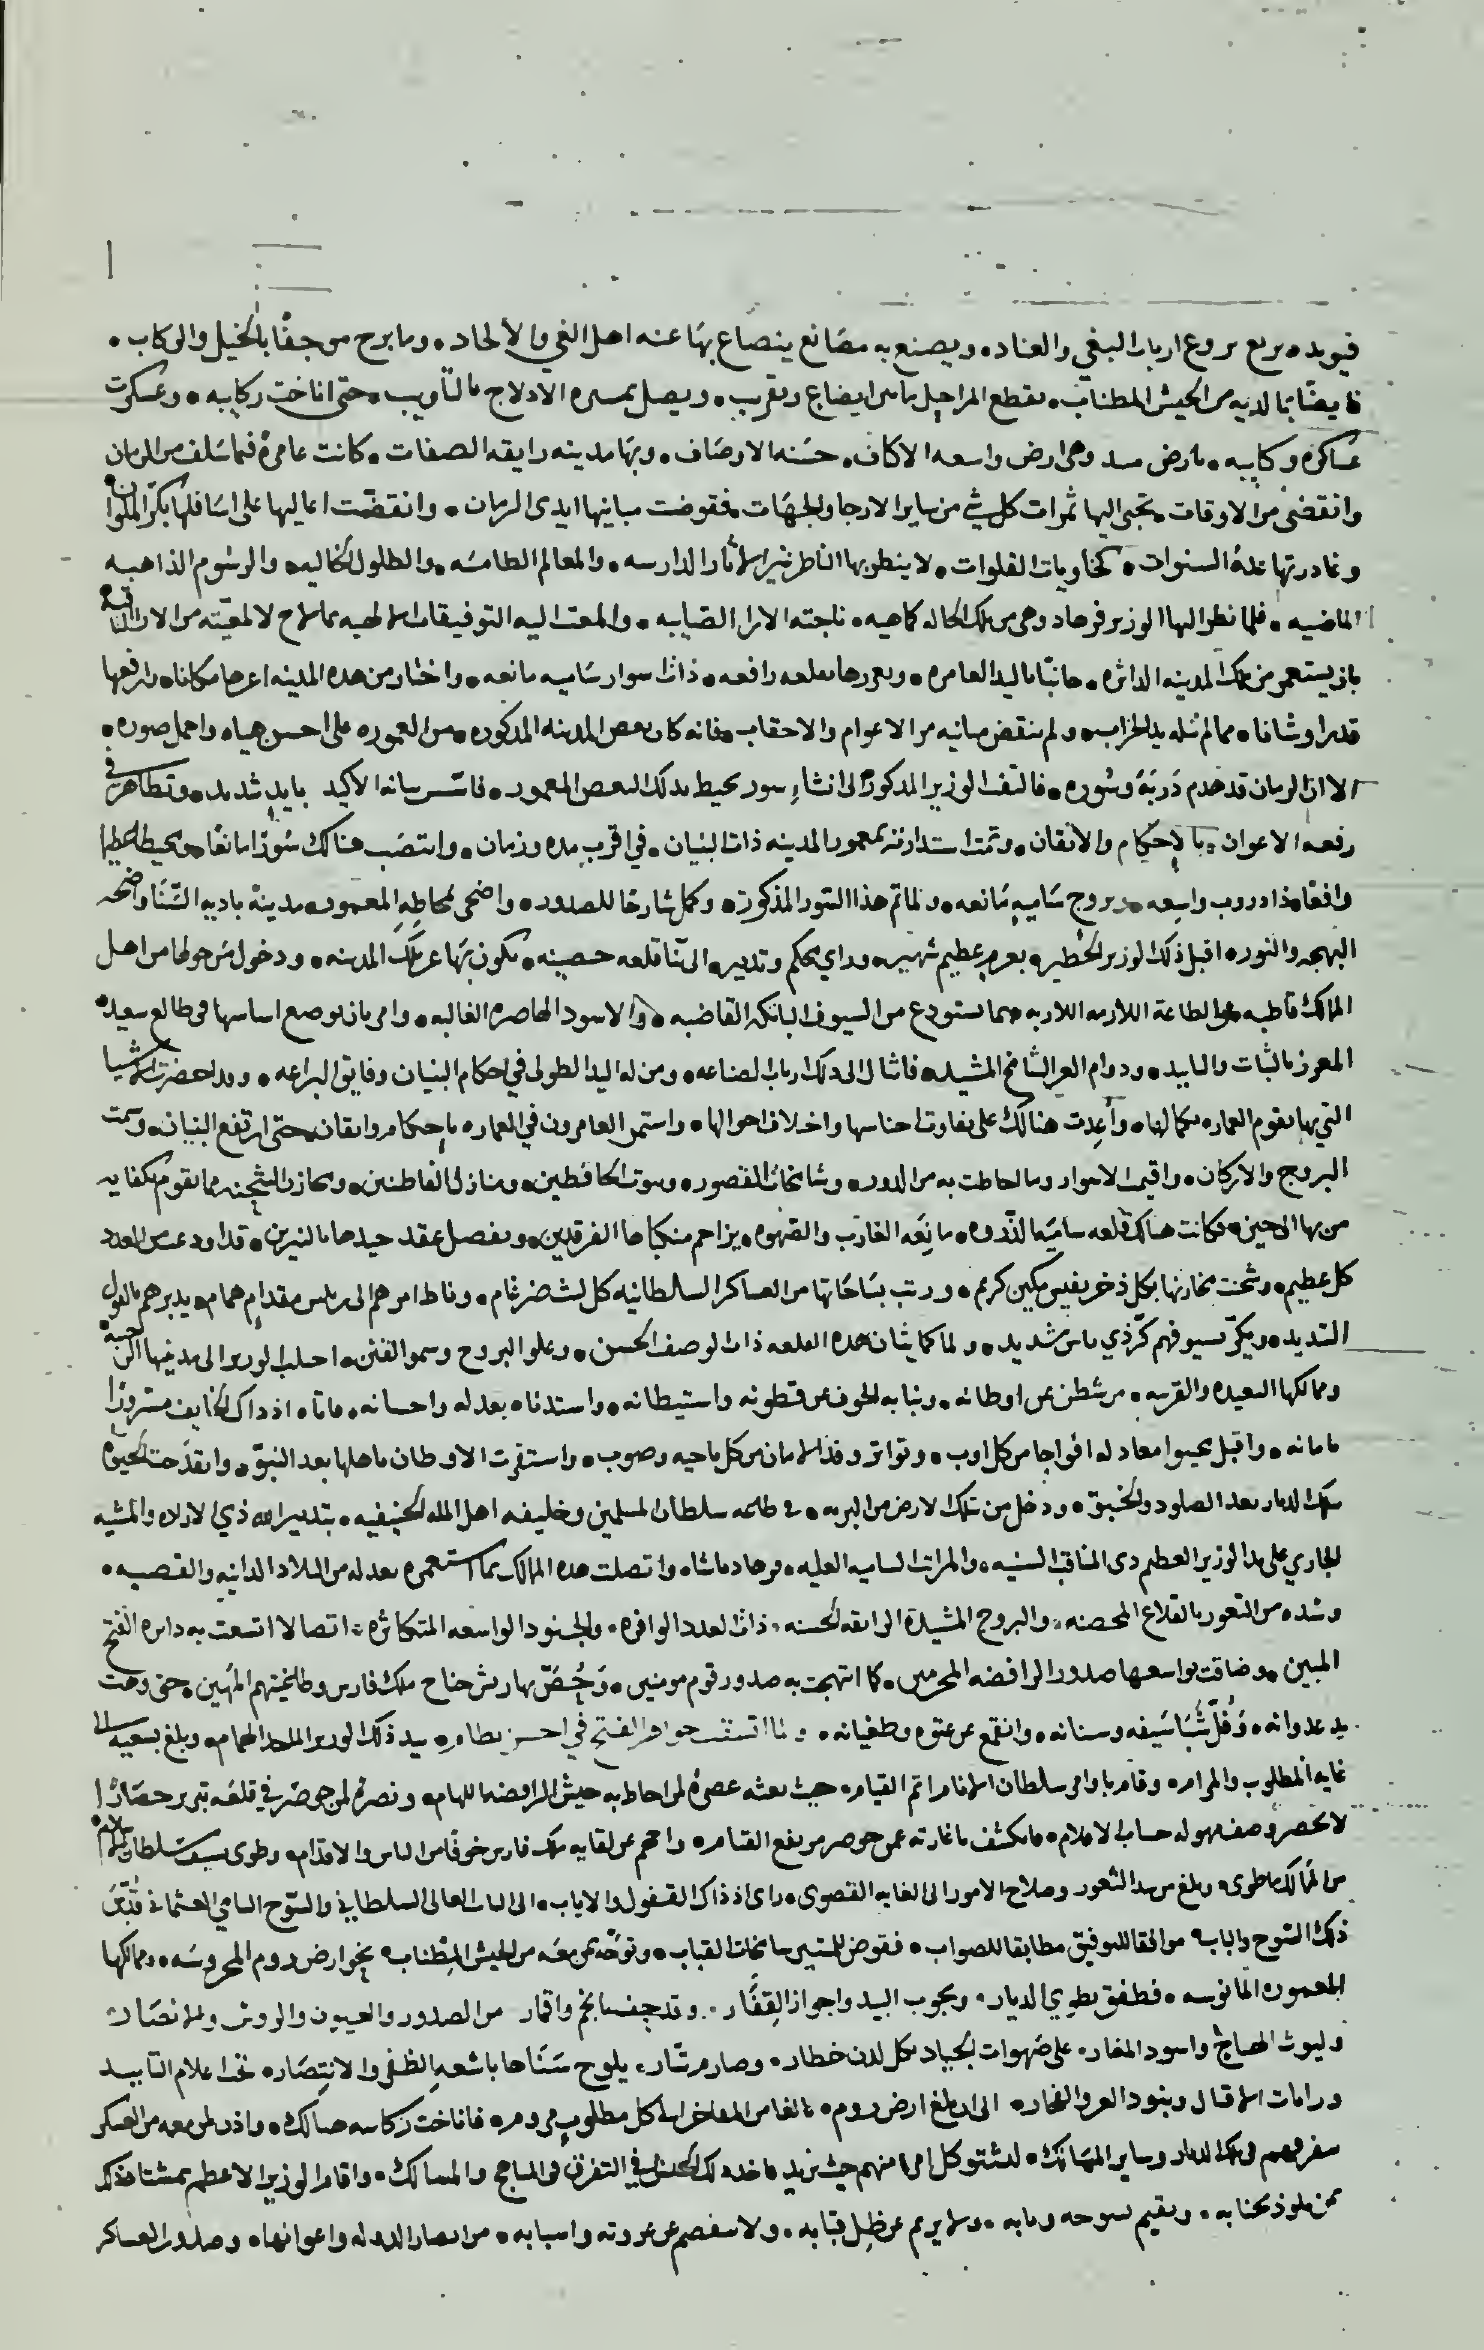 فيويده يربع بروع ارباب البغي والعناد ٠ ويصنع به مصانع ينصاع بها عنه اهل الغي والالحاد ٠ وما برح موجفا بالخيل والركاب ٠
فايضا بما لديه من الجيش المطناب ٠ يقطع المراحل ما بين ايضاع وتقريب ٠ ويصل بمسيره الادلاج بالتاويب ٠ حتى اناخت ركايبه ٠ وعسكرت
عساكره وكتايبه ٠ بارض وهى ارض واسعه الاكناف ٠ حسنه الاوصاف ٠ وبها مدينه رايقه الصفات ٠ كانت عامرة فيما سلف من الزمان
وانقضى من الاوقات ٠ تجبى اليها ثمرات كل شي من ساير الارجا والجهات ٠ فقوضت مبانيها ايدى الزمان ٠ وانقضت اعاليها على اسافلها بكر الملوان
وغادرتها عدة السنوات ٠ كخاويات الفلوات ٠ لا ينظر بها الناظر غير الاثار الدارسه ٠ والمعالم الطامسه ٠ والطلول الخاليه ٠ والرسوم الذاهبه
الماضيه ٠ فلما نظر اليها الوزير فرهاد وهى من تلك الحاله كماهيه ٠ ناجته الارا الصايبه ٠ والمعت اليه التوفيقات الالهيه بما لاح لالمعيته من الارا الثاقبه
بان يستعمر من تلك المدينه الداثره ٠ جانبا باليد العامره ٠ ويعززها بقلعه رافعه ٠ ذات اسوار ساميه مانعه ٠ واختار من هذه المدينه اعزها مكانا ٠ وارفعها
قدرا وشانا ٠ مما لم تنله يد الخراب ٠ ولم ينقض مبانيه مر الاعوام والاحقاب ٠ فانه كان بعض المدينه المذكوره ٠ من العموره على احسن هياه واجمل صوره ٠
الا ان الزمان قد هدم دربه وسوره ٠ فالتفت الوزير المذكور الى انشاء سور يحيط بذلك البعض المعمور ٠ فاسس بنيانه الاكيد بايد شديد ٠ وتظاهر في
رفعه الاعوان ٠ بالاحكام والاتقان ٠ وتمت استدارته بمعمور المدينه ذات البنيان ٠ في اقرب مده وزمان ٠ وانتصب هنالك سورا مانعا ٠ ومحيطا عظيما
واقعا ٠ ذا دروب واسعه ٠ وبروج ساميه مانعه ٠ ولما تم هذا السور المذكور ٠ وكمل شارحا للصدور ٠ واضحى محاطه المعمور ٠ مدينه باديه السنا واضحه
البهجه والنور ٠ اقبل ذلك الوزير الخطير ٠ بعزم عظيم شهير ٠ وراي محكم وتدبير ٠ الى بنا قلعه حصينه ٠ يكون بها عز تلك المدينه ٠ ودخول من حولها من اهل
الممالك قاطبه ٠ في الطاعة اللازمه اللازبه ٠ بما يستودع من السيوف الباتكه القاضبه ٠ والاسود الهاصره الغالبه ٠ وامر بان يوضع اساسها في طالع سعيد ٠
المعزز بالثبات والتاييد ٠ ودوام العز الشامخ المشيد ٠ فانثال الى ذلك ارباب الصناعه ٠ ومن له اليد الطولى في احكام البنيان وفايق البراعه ٠ وقد احضرت الاشيا
التي بها يقوم العماره بكمالها ٠ واعدت هنالك على تفاوت اجناسها واختلاف احوالها ٠ واستمر العامرون في العماره باحكام واتقان ٠ حتى ارتفع البنيان ٠ وتمت
البروج والاركان ٠ واقيمت الاسوار وما احاطت به من الدور ٠ وشامخات القصور ٠ وبيوت الحافظين ٠ ومنازل القاطنين ٠ ومخازن الشحنه مما يقوم بكفايه
من بها الى حين ٠ فكانت هنالك قلعه ساميه الذروه ٠ مانعه الغارب والصهوه ٠ يزاحم منكباها الفرقدين ٠ ويفصل عقد جيدها بالنيرين ٠ قد اودعت من العدد
كل عظيم ٠ وشحنت مخازنها بكل ذخر نفيس مكين كريم ٠ ورتب بساحاتها من العساكر السلطانيه كل ليث ضرغام ٠ وناط امرهم الى رييس مقدام همام ٠ يدبرهم بالقول
السديد ٠ ويكر بسيوفهم كر ذي باس شديد ٠ ولما كمل شان هذه القلعه ذات الوصف الحسن ٠ وعلو البروج وسمو القنن ٠ اجلب الوزير الى مدينتها الرحيبه ٠
وممالكها البعيده والقريبه ٠ من شطن عن اوطانه ٠ ونبا به الخوف عن قطونه واستيطانه ٠ واستدناه بعدله واحسانه ٠ فاتاه اذ ذاك الخايف مسرورا
بامانه ٠ واقبل محبوا معادله افواجا من كل اوب ٠ وتواتر وفد الامان من كل ناحيه وصوب ٠ واستقرت الاوطان باهلها بعد النبو ٠ وانقدحت الحيوة
بتلك الديار بعد الصلود والخبو ٠ ودخل من بتلك الارض من البريه ٠ في طاعه سلطان المسلمين وخليفه اهل المله الحنيفيه ٠ بتدبير الله ذي الاراده والمشيه
الجاري على يد الوزير العظيم ذى المناقب السنيه ٠ والمراتب الساميه العليه ٠ فرهاد باشا ٠ واتصلت هذه الممالك بما استعمره بعدله من البلاد الدانيه والقصيه ٠
وشده من الثغور بالقلاع المحصنه ٠ والبروج المشيدة الرايقه الحسنه ٠ ذات العدد الوافره ٠ والجنود الواسعه المتكاثره ٠ اتصالا اتسعت به دايره الفتح
المبين ٠ وضاقت بواسعها صدور الرافضه المجرمين ٠ كما ابتهجت به صدور قوم مومنين ٠ وحص بها ريش جناح ملك فارس وطاغيتهم المهين ٠ حتى وهت
يد عدوانه ٠ وفل شبا سيفه وسنانه ٠ وانقمع عن عتوه وطغيانه ٠ ولما اتسقت جواهر الفتح في احسن نظام ٠ بيد ذلك الوزير الهمام ٠ وبلغ بسعيه الى
غايه المطلوب والمرام ٠ وقام باوامر سلطان الانام اتم القيام ٠ حيث بعثه عصرة لمن احاط به جيش الرافضه اللهام ٠ ونصرة لمن حوصر في قلعه تبريز حصارا
لا تحصر وصف مهوله حساب الاقلام ٠ فانكشف باغارته عمن حوصر مرتفع القتام ٠ واحجم عن لقايه ملك فارس خوفا من الباس والاقدام ٠ وطوى بسيف سلطان الاسلام ٠
من الممالك ما طوى ٠ وبلغ من سد الثغور وصلاح الامور الى الغايه القصوى ٠ راى اذ ذاك القفول والاياب ٠ الى الباب العالى السلطاني والسوح السامي العثماني ٠ قدس
ذلك السوح والباب ٠ موافقا للتوفيق مطابقا للصواب ٠ فقوض للمسير شامخات القباب ٠ وتوجه بمن معه من الجيش المطناب ٠ نحو ارض روم المحروسه ٠ وممالكها
المعموره المانوسه ٠ فطفق يطوي الديار ٠ ويجوب البيد واجواز القفار ٠ وقد حف بانجم واقمار من الصدور والعيون والروس والانصار ٠
وليوث الهياج واسود المغار ٠ على صهوات الجياد بكل لدن خطار ٠ وصارم بتار ٠ يلوح سناها باشعه الظفر والانتصار ٠ تحت اعلام التاييد
ورايات الاقبال وبنود العز والفخار ٠ الى ان بلغ ارض روم ٠ بالغا من المفاخر الى كل مطلوب مروم ٠ فاناخت ركابه هنالك ٠ واذن لمن معه من العسكر
بتفرقهم في تلك الديار وساير المسالك ٠ ليشتو كل امر منهم حيث يريد ٠ فاخذ ذلك الجيش في التفرق في المناهج والمسالك ٠ واقام الوزير الاعظم بمشتاه ذلك
بمن يلوذ بجنابه ٠ ويقيم بسوحه وبابه ٠ ولا يريم عن ظل قبابه ٠ ولا ينفصم عن عروته واسبابه ٠ من انصار الدوله واعوانها ٠ وصدور العساكر